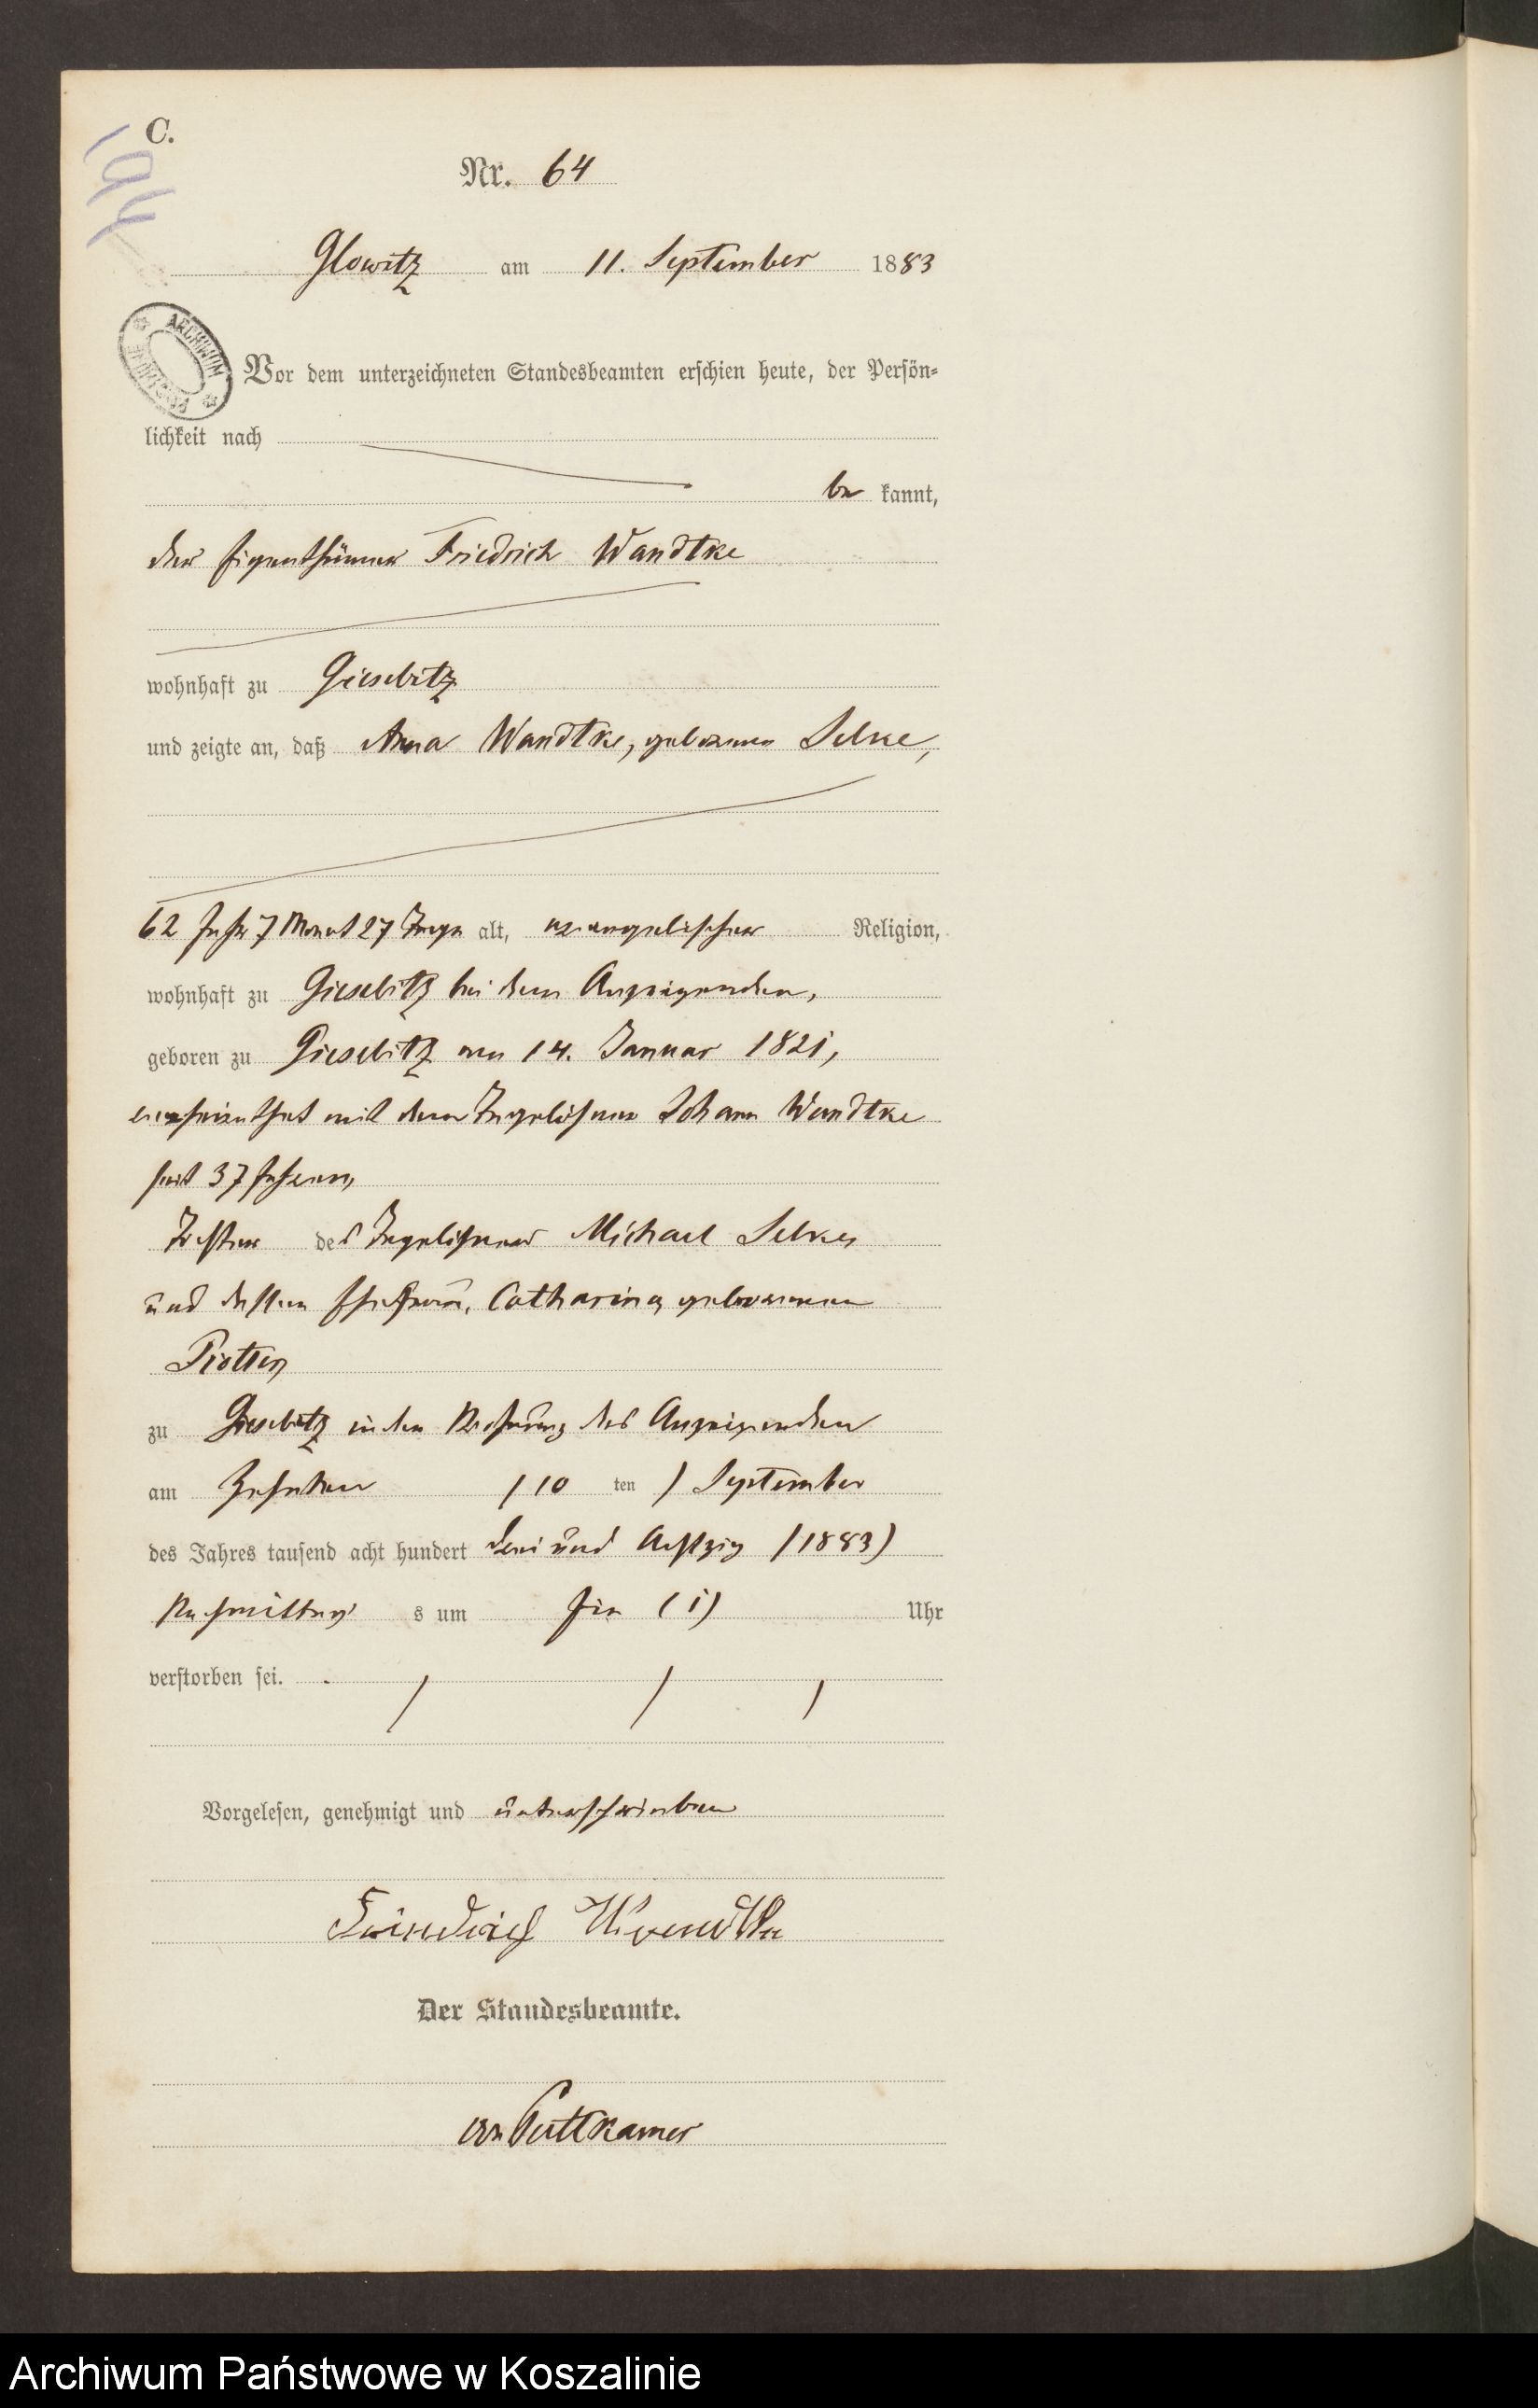 C.
194
Nr. 64
Glowitz am 11. September 1883
ARCHIWUM
Vor dem unterzeichneten Standesbeamten erschien heute, der Persön-
lichkeit nach
be kannt,
der Eigenthümer Friedrich Wandtke
wohnhaft zu Giesebitz
und zeigte an, daß Anna Wandtke, geborene Selke,
62 Jahr 7 Monat 27 Tage alt, evangelischer Religion,
wohnhaft zu Giesebitz bei dem Anzeigenden,
geboren zu Giesebitz am 14. Januar 1821,
verheirathet mit dem Tagelöhner Johann Wandtke
seit 37 Jahren,
Tochter des Tagelöhner Michael Selke
und dessen Ehefrau, Catharina geborenen
zu Giesebitz in der Wohnung des Anzeigenden
am Zehnten (10 ten ) September
des Jahres tausend acht hundert drei und Achtzig (1883)
Nachmittag s um Ein (1) Uhr
verstorben sei.
Vorgelesen, genehmigt und unterschrieben
Friedrich
Der Standesbeamte.
von Puttkamer
Archiwum Państwowe w Koszalinie